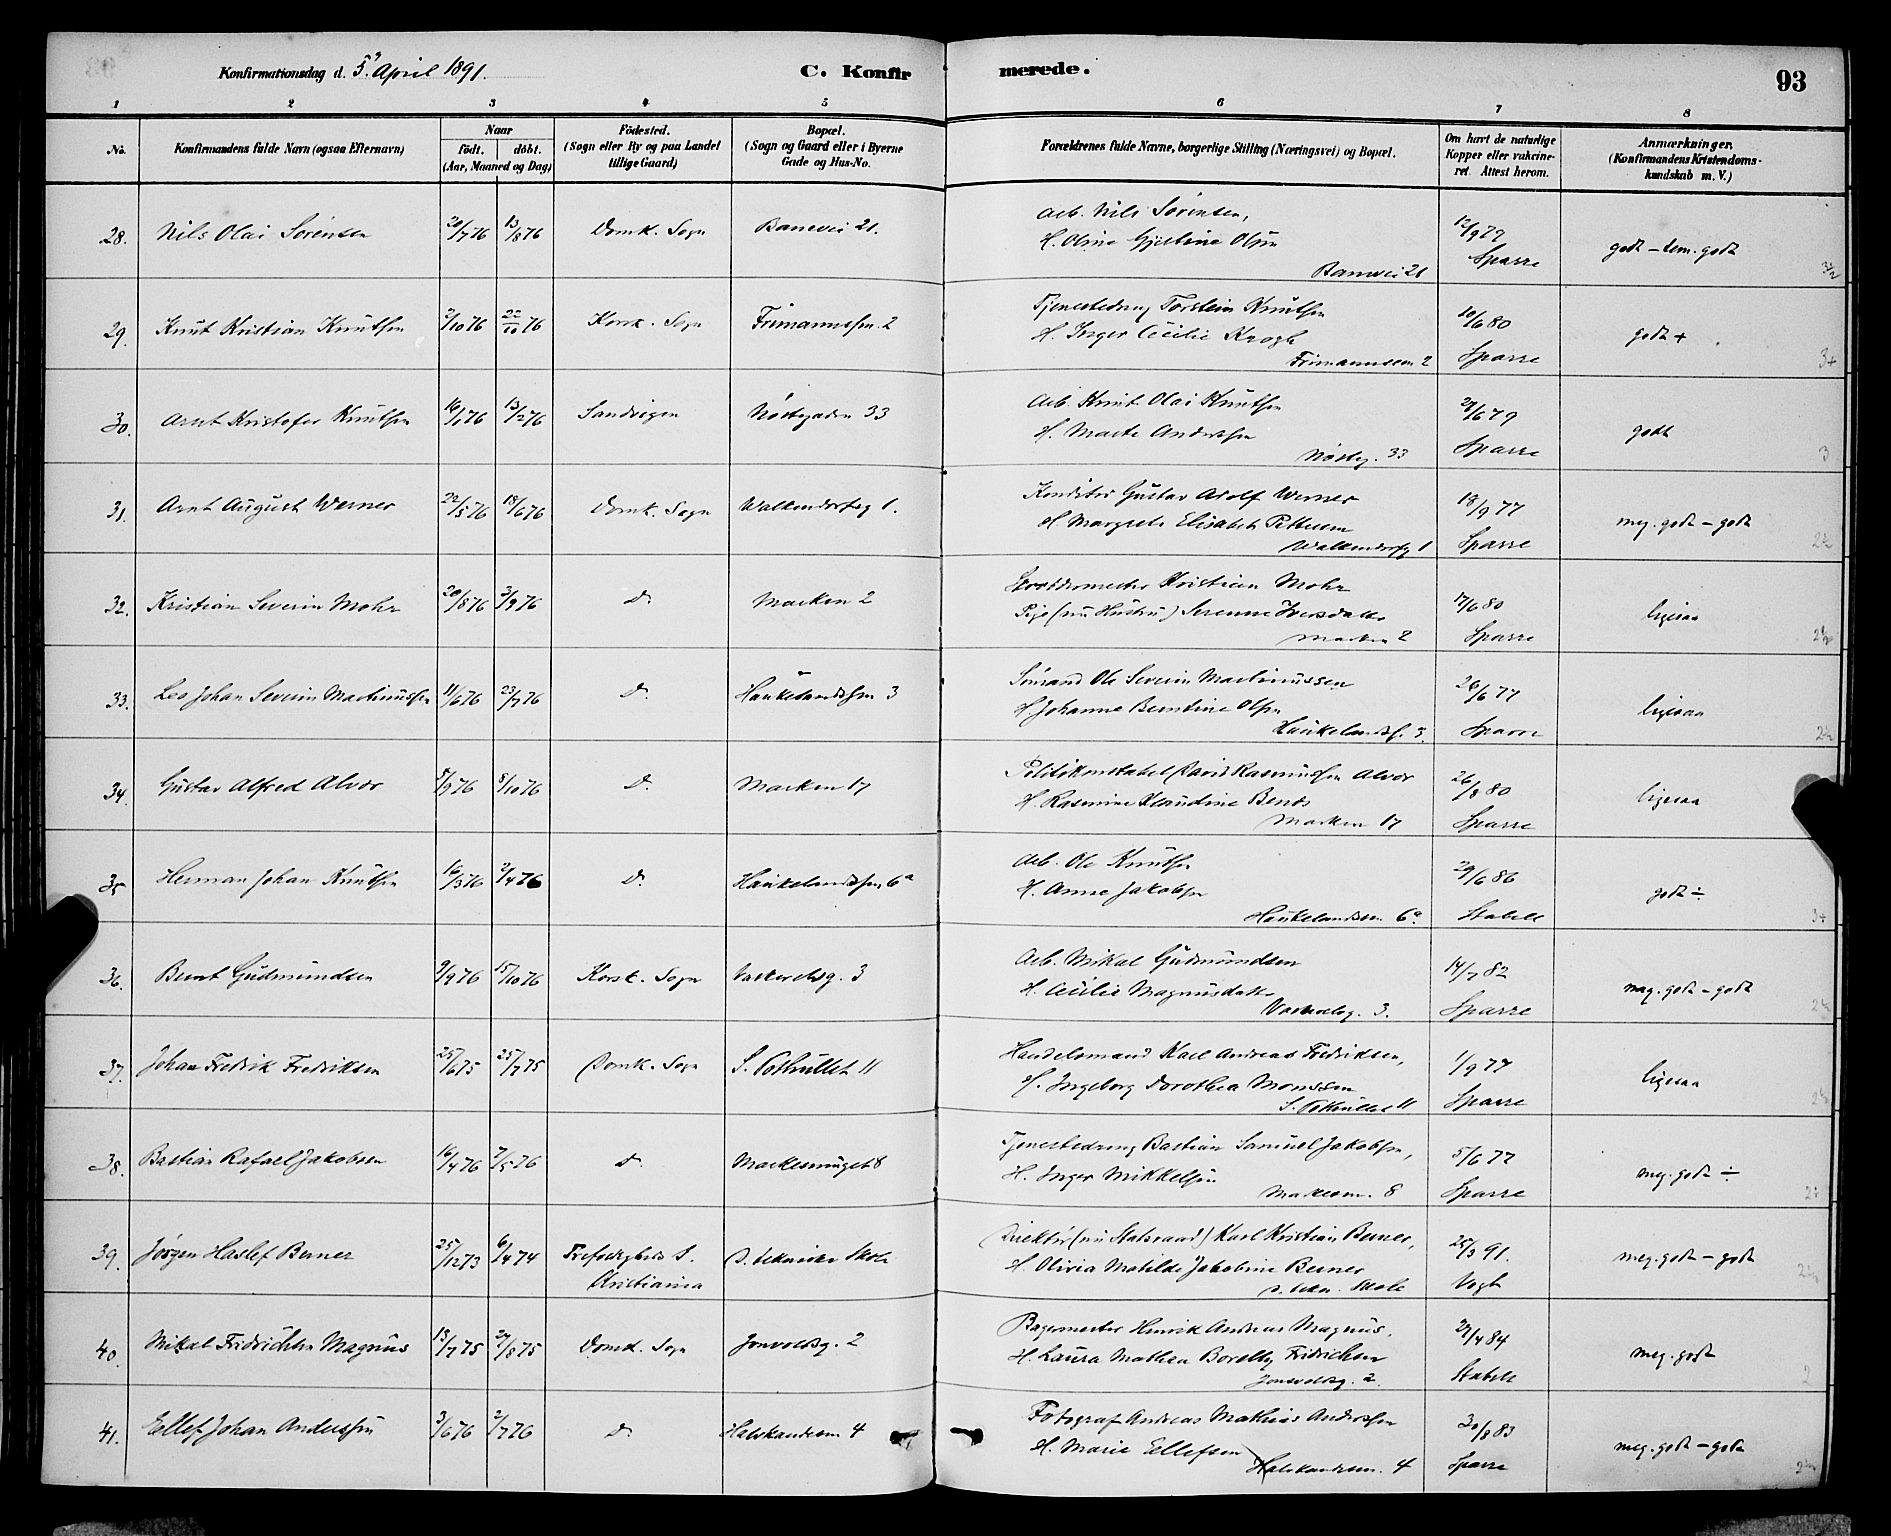 Konfirmationsdag d. 5te April 1891.
C. Konfirmerede.
93
1 2 3 4 5 6 7 8
No.
Konfirmandens fulde Navn (ogsaa Efternavn)
Naar
födt. döbt.
(Aar, Maaned og Dag)
Födested.
(Sogn eller By og paa Landet
tillige Gaard)
Bopæl.
(Sogn og Gaard eller i Byerne
Gade og Hus-No.
Forældrenes fulde Navne, borgerlige Stilling (Næringsvei) og Bopæl.
Om havt de naturlige
Kopper eller vakcine-
ret. Attest herom.
Anmærkninger.
(Konfirmandens Kristendoms-
kundskab m. V.)
28. Nils Olai Sörensen 20/7 76 13/8 76 Domk. Sogn Banevei 21. Arb. Nils Sörensen, 12/9 79 godt - tem. godt
H. Oline Gjertine Olsen Sparre
Banevei 21 3½
29. Knut Kristian Knutsen 2/10 76 22/10 76 Korsk. Sogn Frimannssm 2 Tjenestedreng Torstein Knutsen 10/6 80 godt +
H. Inger Cecilie Krogh
Frimannssm 2 Sparre 3+
30. Arnt Kristofer Knutsen 16/1 76 13/2 76 Sandvigen Nöstegaden 33 Arb. Knut Olai Knutsen 27/6 79 godt
H. Marte Andersen Sparre
Nösteg. 33 3
31. Arnt August Werner 22/5 76 18/6 76 Domk. Sogn Walkendorfsg 1. Konditor Gustav Adolf Werner 18/9 77 meg. godt - godt
H. Margrete Elisabeth Pettersen
Walkendorfsg 1 Sparre 2½
32. Kristian Severin Mohr 20/8 76 3/9 76 D. Marken 2 Kristian Mohr 17/6 80 ligesaa
Pige (nu Hustru) Serenne Iversdatter
Marken 2 Sparre 2½
33. Leo Johan Severin Martinussen 11/6 76 23/7 76 D. Haukelandssm 3 Sömand Ole Severin Martinussen 26/6 77 ligesaa
H. Johanne Berntine Olsen
Haukelandss. 3. Sparre 2½
34. Gustav Alfred Alvær 5/9 76 8/10 76 D. Marken 17 Politikonstabel David Rasmussen Alvær 26/8 80 ligesaa
H. Rasmine Klaudine
Marken 17 Sparre
35 Herman Johan Knutsen 16/3 76 2/4 76 D. Haukelandssm 6a Arb. Ole Knutsen 29/6 86 godt ÷
H. Anne Jakobsen
Haukelandssm. 6a. Stabell 3+
36. Bernt Gudmundsen 9/9 76 15/10 76 Korsk. Sogn Vaskerelvsg. 3 Arb. Mikal Gudmundsen 14/7 82 meg. godt - godt
H. Cecilie Magnusdatter
Vaskerelvsg. 3. Sparre 2½
37. Johan Fredrik Fredriksen 25/6 75 25/7 75 Domk. Sogn S. Tothullet 11 Handelsmand Karl Andreas Fredriksen, 1/9 77 ligesaa
H. Ingeborg Dorothea Monssen
S. Tothullet 11 Sparre 2½
38. Bastian Rafael Jakobsen 16/4 76 7/5 76 D. Markesmuget 8 Tjenestedreng Bastian Samuel Jakobsen, 5/6 77 meg. godt ÷
H. Inger Mikkelsen
Markesm. 8 Sparre 2÷
39. Jörgen Haslef Berner 25/12 73 6/4 74 Trefoldigheds S. D. tekniske Skole Direktör (nu Statsraad) Karl Kristian Berner, 25/3 91. meg. godt - godt
Christiania H. Olivia Matilde Jakobine Berner
D. tekn. Skole Vogt 2½
40. Mikal Fridrichsen Magnus 13/7 75 27/8 75 Domk. Sogn Jonsvoldsg. 2 Bagermester Henrik Andreas Magnus, 29/4 84 meg. godt
H. Laura Mathea Fridrichsen
Jonsvoldsg. 2. Stabell 2
41. Ellef Johan Andersen 3/6 76 2/7 76 D Halvkandssm 4 Fotograf Andreas Mathias Andersen 30/8 83 meg. godt - godt
H. Marie Ellefsen
Halvkandssm. 4 Sparre 2½